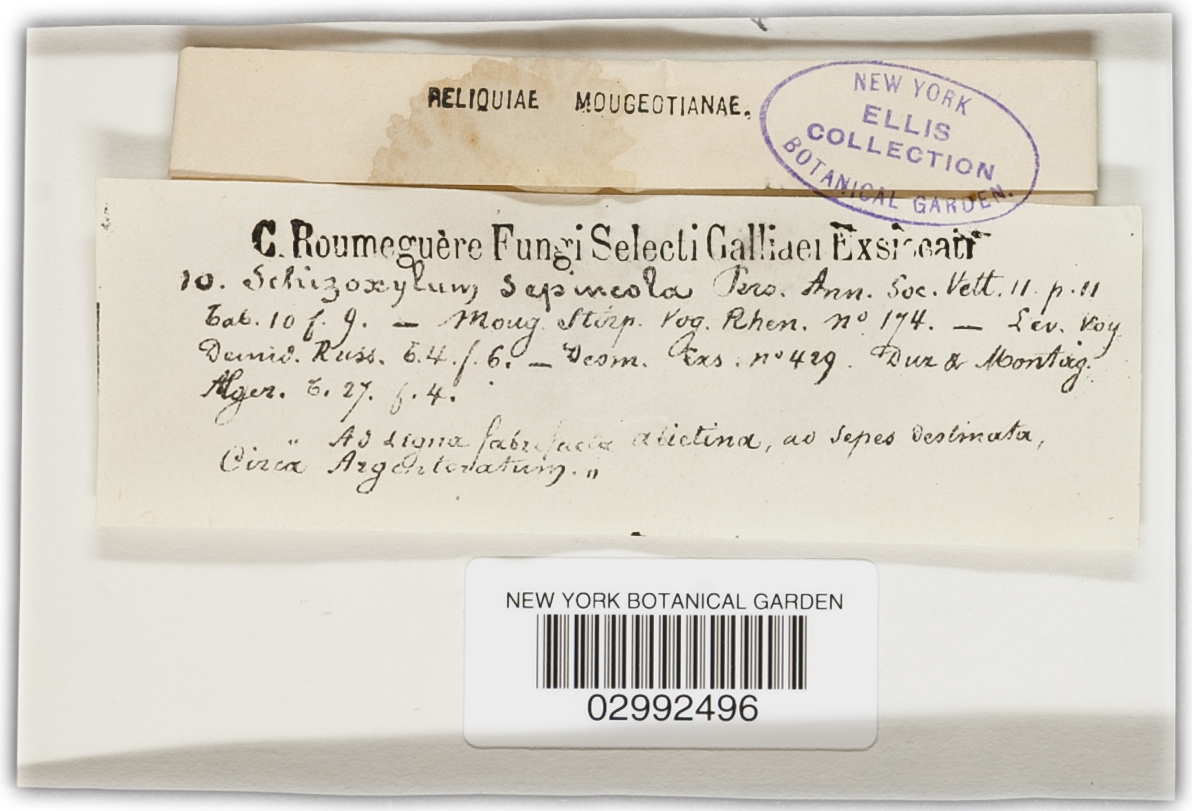 RELIQUIAE MOUGEOTIANAE.
NEW YORK
ELLIS
COLLECTION
BOTANICAL GARDEN.
C. Roumeguère Fungi Selecti Galliaei Exsiccati
10. Schizoxylum sepincola Pers. Ann. Soc. Vett. 11. p. 11
Tab. 10 f. 9. — Moug. Stirp. Vog. Rhen. nº 174. — Lev. Voy.
Demid. Russ. t. 4. f. 6. — Desm. Exs. nº 429. Dur & Montag.
Alger. t. 27. f. 4.
" Ad ligna fabrefacta abietina, ad sepes destinata,
Circa Argentoratum. "
NEW YORK BOTANICAL GARDEN
02992496